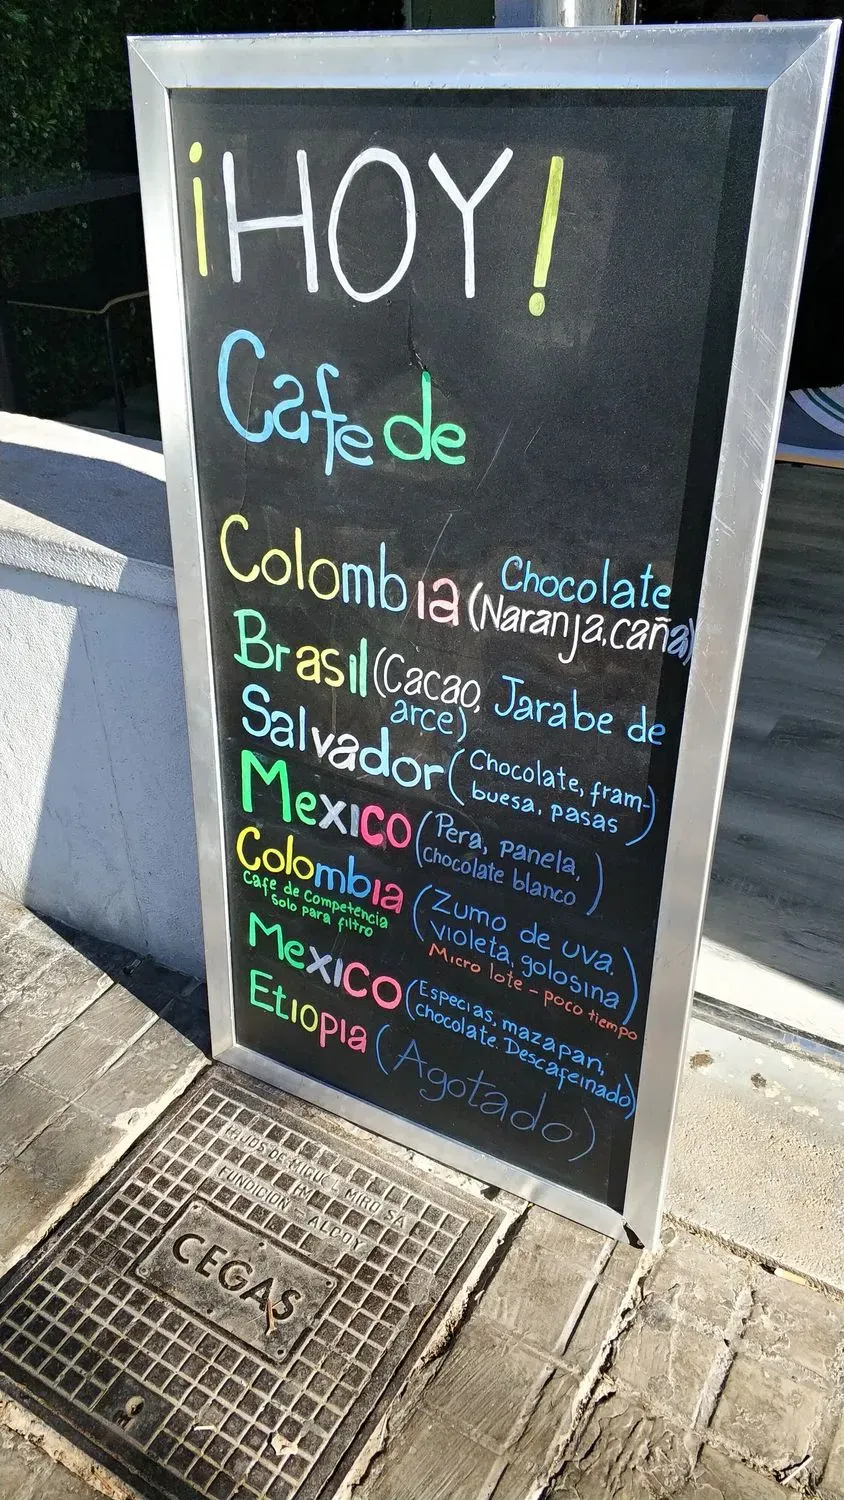 ¡HOY!
Cafe de
Colombia (Chocolate
Naranja, caña)
Brasil (Cacao, Jarabe de
arce)
Salvador (Chocolate, fram-
buesa, pasas)
Mexico (Pera, panela,
chocolate blanco)
Colombia (Zumo de uva,
Cafe de competencia
solo para filtro
violeta, golosina)
Micro lote - poco tiempo
Mexico (Especias, mazapan,
chocolate. Descafeinado)
Etiopia (Agotado)
HIJOS DE MIGUEL MIRO SA
FM
FUNDICION - ALCOY
CEGAS